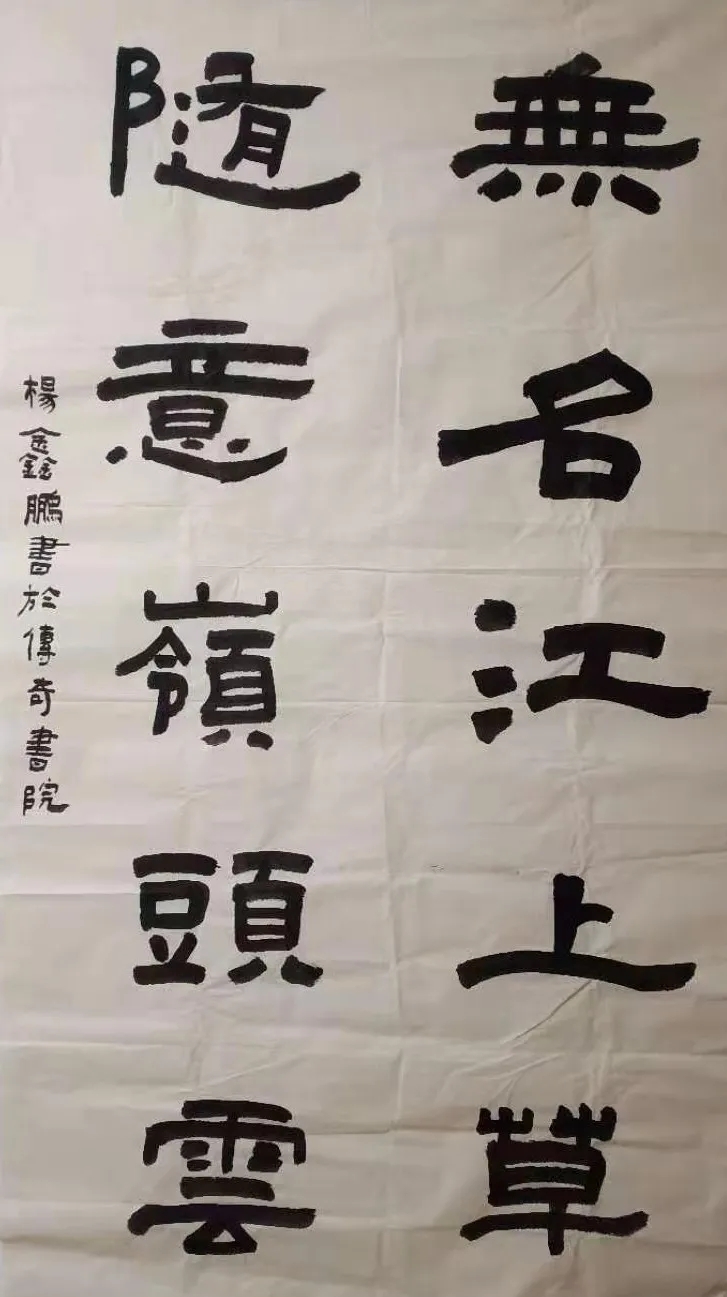 無名江上草
隨意嶺頭雲
楊鑫鵬書於傳奇書院